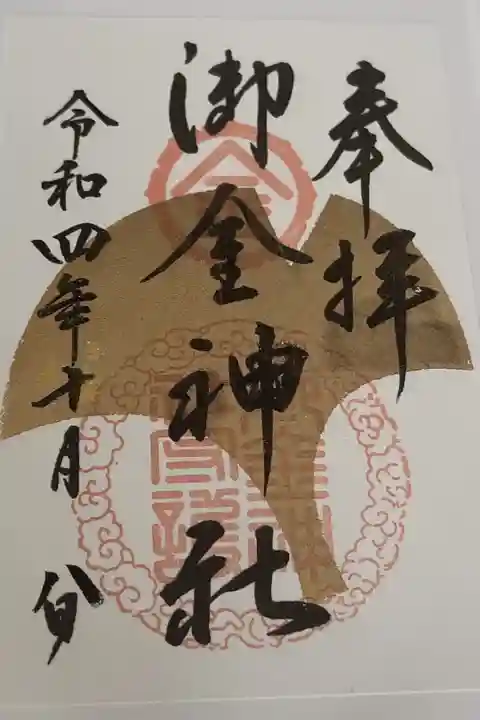 奉拝
御金神社
令和四年十月八日